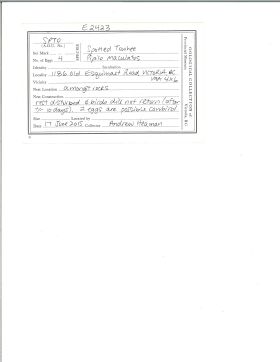 E2423
SPTO
(A.O.U. No.)
SPECIES
Spotted Towhee
Set Mark
Pipilo maculatus
No. of Eggs 4
Identity Incubation
Locality 1186 Old Esquimalt Road, VICTORIA BC
Vicinity V9A 4X6
Nest Location amongst rocks
Nest Construction
nest disturbed & birds did not return (after
7-10 days). 2 eggs are possible cowbird
Size Located by
Date 17 June 2015 Collector Andrew Harman
OOLOGICAL COLLECTION of
Provincial Museum Victoria, B.C.